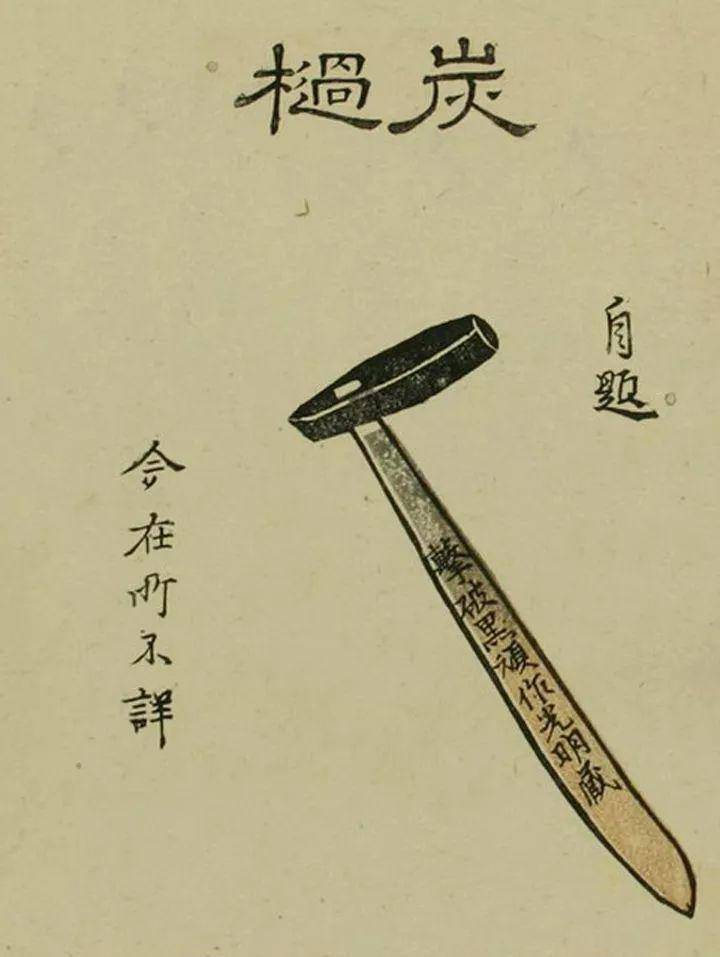 炭檛
自題
擊破黒頑作光明蔵
今在所不詳